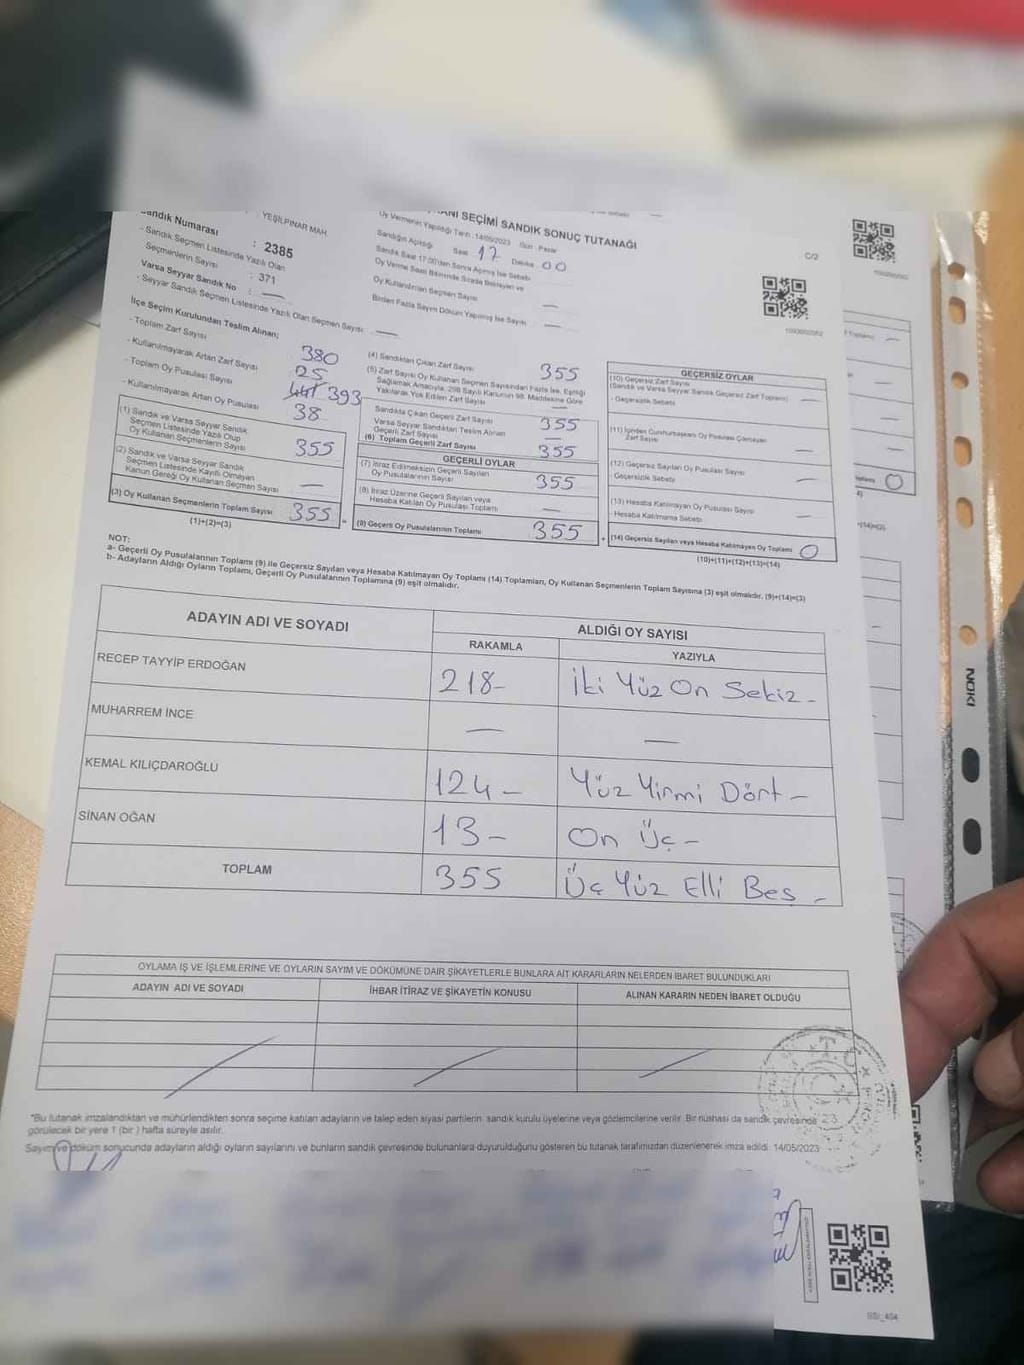 YEŞİLPINAR MAH.
Sandık Numarası : 2385
- Sandık Seçmen Listesinde Yazılı Olan
Seçmenlerin Sayısı : 371
Varsa Seyyar Sandık No : —
- Seyyar Sandık Seçmen Listesinde Yazılı Olan Seçmen Sayısı : —
SEÇİMİ SANDIK SONUÇ TUTANAĞI
C/2
Oy Vermenin Yapıldığı Tarih : 14/05/2023 Gün : Pazar
Sandığın Açıldığı Saat 17 Dakika 00
Sandık Saat 17.00'den Sonra Açılmış İse Sebebi
Oy Verme Saati Bitiminde Sırada Bekleyen ve
Oy Kullandırılan Seçmen Sayısı —
Birden Fazla Sayım Döküm Yapılmış İse Sayısı —
İlçe Seçim Kurulundan Teslim Alınan;
- Toplam Zarf Sayısı 380
- Kullanılmayarak Artan Zarf Sayısı 25
- Toplam Oy Pusulası Sayısı 393
- Kullanılmayarak Artan Oy Pusulası 38
(1) Sandık ve Varsa Seyyar Sandık
Seçmen Listesinde Yazılı Olup
Oy Kullanan Seçmenlerin Sayısı 355
(2) Sandık ve Varsa Seyyar Sandık
Seçmen Listesinde Kayıtlı Olmayan
Kanun Gereği Oy Kullanan Seçmen Sayısı —
(3) Oy Kullanan Seçmenlerin Toplam Sayısı 355
(1)+(2)=(3)
(4) Sandıktan Çıkan Zarf Sayısı 355
(5) Zarf Sayısı Oy Kullanan Seçmen Sayısından Fazla ise, Eşitliği
Sağlamak Amacıyla, 298 Sayılı Kanunun 98. Maddesine Göre
Yakılarak Yok Edilen Zarf Sayısı —
Sandıkta Çıkan Geçerli Zarf Sayısı 355
Varsa Seyyar Sandıktan Teslim Alınan
Geçerli Zarf Sayısı —
(6) Toplam Geçerli Zarf Sayısı 355
GEÇERLİ OYLAR
(7) İtiraz Edilmeksizin Geçerli Sayılan
Oy Pusulalarının Sayısı 355
(8) İtiraz Üzerine Geçerli Sayılan veya
Hesaba Katılan Oy Pusulası Toplamı —
(9) Geçerli Oy Pusulalarının Toplamı 355
GEÇERSİZ OYLAR
(10) Geçersiz Zarf Sayısı
(Sandık ve Varsa Seyyar Sandık Geçersiz Zarf Toplamı) —
- Geçersizlik Sebebi
(11) İçinden Cumhurbaşkanı Oy Pusulası Çıkmayan
Zarf Sayısı —
(12) Geçersiz Sayılan Oy Pusulası Sayısı
- Geçersizlik Sebebi —
(13) Hesaba Katılmayan Oy Pusulası Sayısı
- Hesaba Katılmama Sebebi —
(14) Geçersiz Sayılan veya Hesaba Katılmayan Oy Toplamı 0
(10)+(11)+(12)+(13)=(14)
NOT:
a- Geçerli Oy Pusulalarının Toplamı (9) ile Geçersiz Sayılan veya Hesaba Katılmayan Oy Toplamı (14) Toplamları, Oy Kullanan Seçmenlerin Toplam Sayısına (3) eşit olmalıdır. (9)+(14)=(3)
b- Adayların Aldığı Oyların Toplamı, Geçerli Oy Pusulalarının Toplamına (9) eşit olmalıdır.
ADAYIN ADI VE SOYADI
ALDIĞI OY SAYISI
RAKAMLA YAZIYLA
RECEP TAYYİP ERDOĞAN 218- İki Yüz On Sekiz -
MUHARREM İNCE — —
KEMAL KILIÇDAROĞLU 124- Yüz Yirmi Dört -
SİNAN OĞAN 13- On Üç -
TOPLAM 355 Üç Yüz Elli Beş -
OYLAMA İŞ VE İŞLEMLERİNE VE OYLARIN SAYIM VE DÖKÜMÜNE DAİR ŞİKAYETLERLE BUNLARA AİT KARARLARIN NELERDEN İBARET BULUNDUKLARI
ADAYIN ADI VE SOYADI İHBAR İTİRAZ VE ŞİKAYETİN KONUSU ALINAN KARARIN NEDEN İBARET OLDUĞU
*Bu tutanak imzalandıktan ve mühürlendikten sonra seçime katılan adayların ve talep eden siyasi partilerin sandık kurulu üyelerine veya gözlemcilerine verilir. Bir nüshası da sandık çevresinde
görülecek bir yere 1 (bir) hafta süreyle asılır.
Sayım ve döküm sonucunda adayların aldığı oyların sayılarını ve bunların sandık çevresinde bulunanlara duyurulduğunu gösteren bu tutanak tarafımızdan düzenlenerek imza edildi. 14/05/2023
NOKI